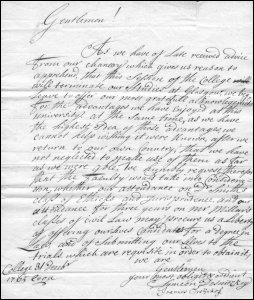 Gentlemen!
As we have of late received advice
from our chancry which gives us reason to
apprehend, that this Session of the College
will terminate our studies at Glasgow, we beg
leave to offer our most grateful acknowledgements
for the advantages we have enjoyed at this
university. at the same time, as we have
the highest Idea of those advantages nor
cannot help resting ever known, after we
return to our own Country, that we have
not neglected to make use of them as far
as we were able, we humbly request
that the Faculty would take into consideration
on, whether our attendance on Dr Smith's
class of Ethicks and Jurisprudence, and our
attendance for three years on Mr Millar's
classes of civil Law may procure us a
by offering ourselves Candidates for a degree in
Law and of submitting our selves to the
trials which are requisite in order to obtain it,
we are
Gentlemen
College 31 Decbr your most obedient servants
1765 Simeon Desnitsky